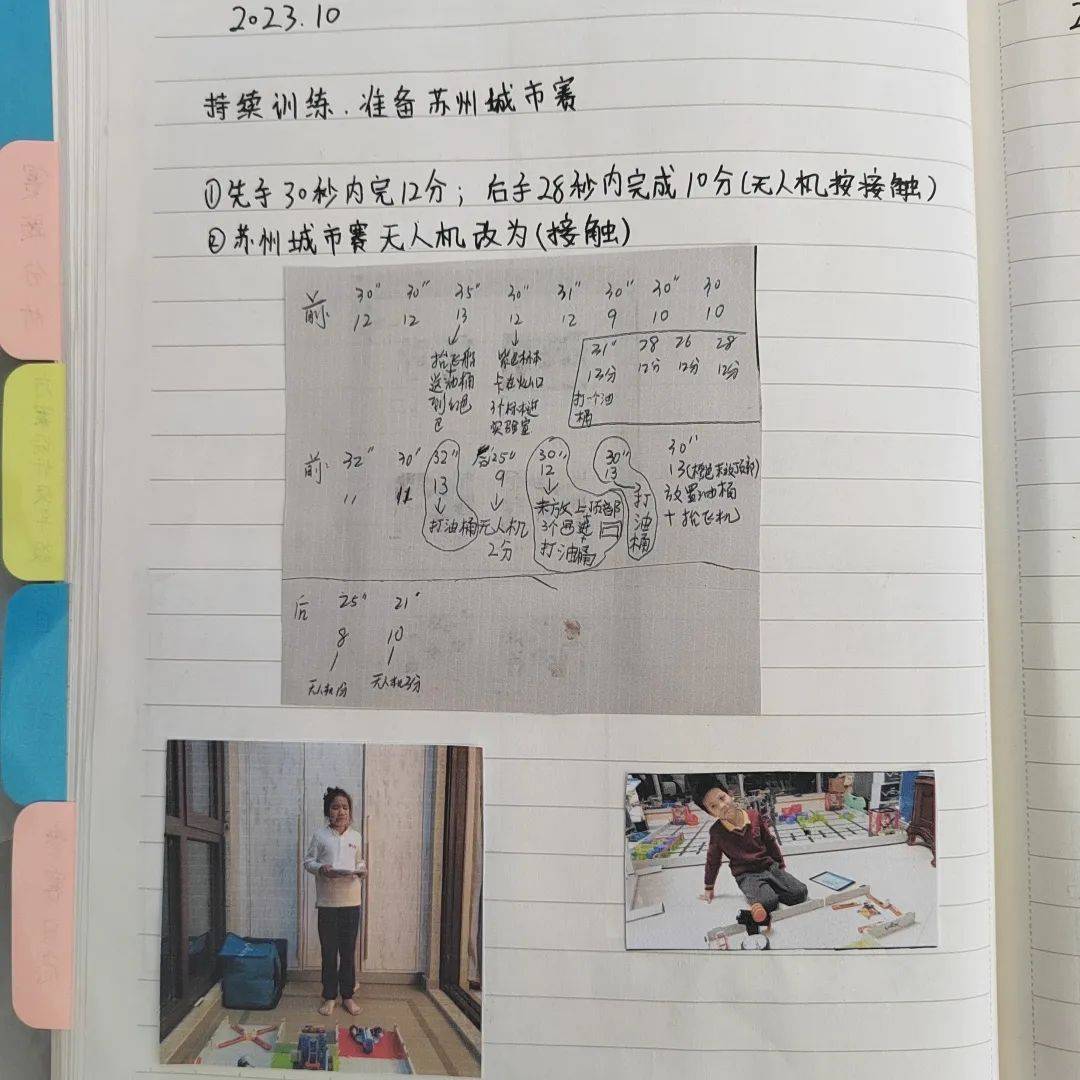 2023.10
持续训练.准备苏州城市赛
①先手30秒内完12分；后手28秒内完成10分(无人机按接触)
②苏州城市赛无人机改为(接触)
前: 30" 30" 35" 30" 31" 30" 30" 30
12 12 13 12 12 9 10 10
31" 28 26 28
13分 12分 12分 12分
打一个油
桶
抢飞船
送油桶
到红色
卡在火山口
3个标本进
实验室
前: 32" 30" 32" 后25" 30" 30" 30"
" 11 13 9 12 13 13
打油桶 无人机
2分
未放上顶部
3个进
打油桶
打
油
桶
放置油桶
+抢飞机
后 25" 21"
8 10
无人机1分 无人机3分